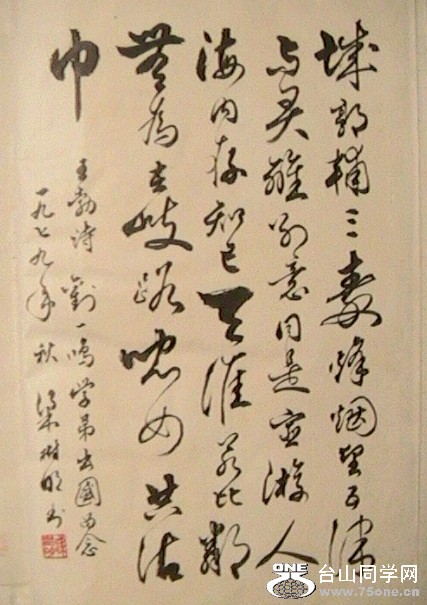 城郭輔三秦烽烟望五津
与君離别意同是宦游人
海内存知己天涯若比鄰
無為在歧路児女共沾
巾
王勃诗 劉一鳴学弟出國为念
一九七九年秋 梁明书
ONE
台山同学网
www.75one.cn